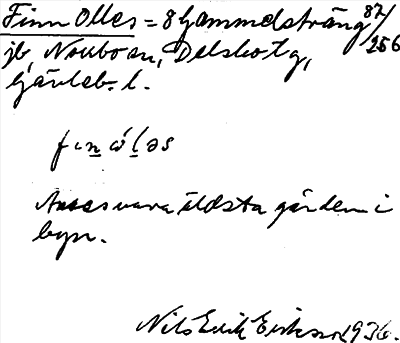 Finn Olles = 8 Gammelsträng 87/256
jb, Norrbo sn, Delsbo tg,
Gävleb. l.
fın ὼḷəs
Anses vara äldsta gården i
byn.
Nils Erik Eriksson 1936.